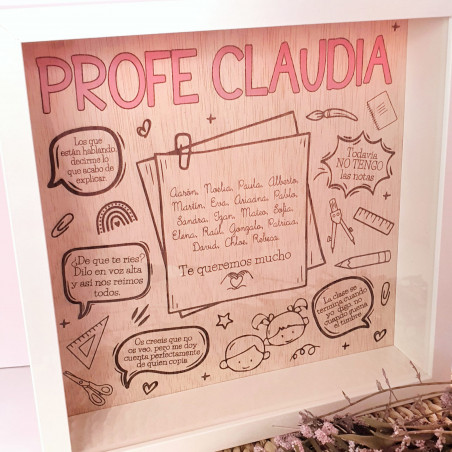 PROFE CLAUDIA
Los que
están hablando,
decirme lo
que acabo de
explicar.
Todavía
NO TENGO
las notas
Aarón, Noelia, Paula, Alberto,
Martín, Eva, Ariadna, Pablo,
Sandra, Izan, Mateo, Sofía,
Elena, Raúl, Gonzalo, Patricia,
David, Chloe, Rebeca.
Te queremos mucho
¿De que te ries?
Dilo en voz alta
y así nos reimos
todos.
La clase se
termina cuando
yo digo, no
cuando suena
el timbre
Os creeis que no
os veo, pero me doy
cuenta perfectamente
de quien copia